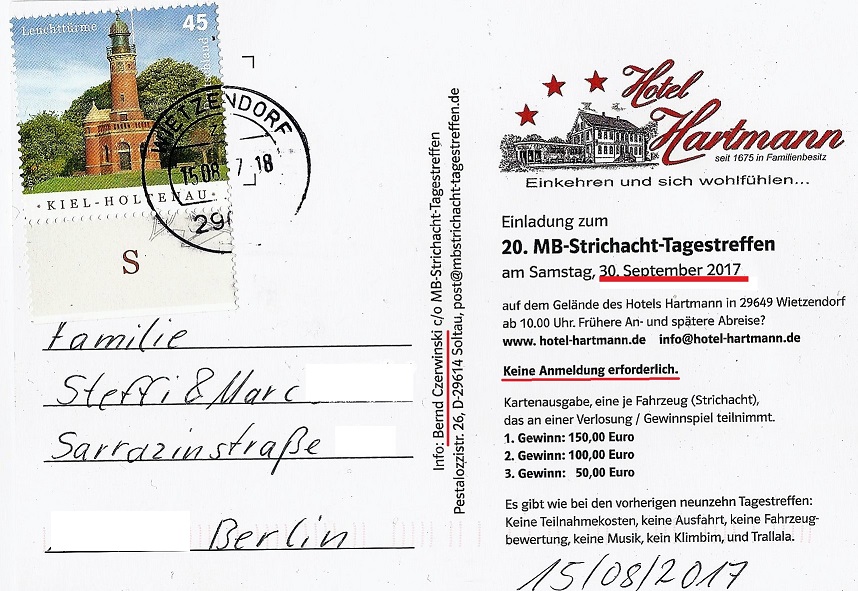 Leuchttürme
45
Deutschland
KIEL-HOLTENAU
S
WIETZENDORF
15.08. 7 18
29
Familie
Steffi & Marc
Sarrazinstraße
Berlin
Info: Bernd Czerwinski c/o MB-Strichacht-Tagestreffen
Pestalozzistr. 26, D-29614 Soltau, post@mbstrichacht-tagestreffen.de
Hotel
Hartmann
seit 1675 in Familienbesitz
Einkehren und sich wohlfühlen...
Einladung zum
20. MB-Strichacht-Tagestreffen
am Samstag, 30. September 2017
auf dem Gelände des Hotels Hartmann in 29649 Wietzendorf
ab 10.00 Uhr. Frühere An- und spätere Abreise?
www. hotel-hartmann.de info@hotel-hartmann.de
Keine Anmeldung erforderlich.
Kartenausgabe, eine je Fahrzeug (Strichacht),
das an einer Verlosung / Gewinnspiel teilnimmt.
1. Gewinn: 150,00 Euro
2. Gewinn: 100,00 Euro
3. Gewinn: 50,00 Euro
Es gibt wie bei den vorherigen neunzehn Tagestreffen:
Keine Teilnahmekosten, keine Ausfahrt, keine Fahrzeug-
bewertung, keine Musik, kein Klimbim, und Trallala.
15/08/2017